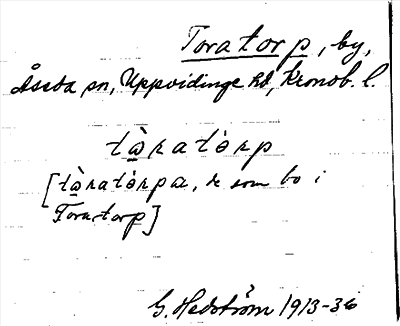 Toratorp, by,
Åseda sn, Uppvidinge hd, Kronob. l.
tὼ̲ratȯrp
[tὼ̲ratȯrpa, de som bo i
Toratorp]
G. Hedström 1913-36